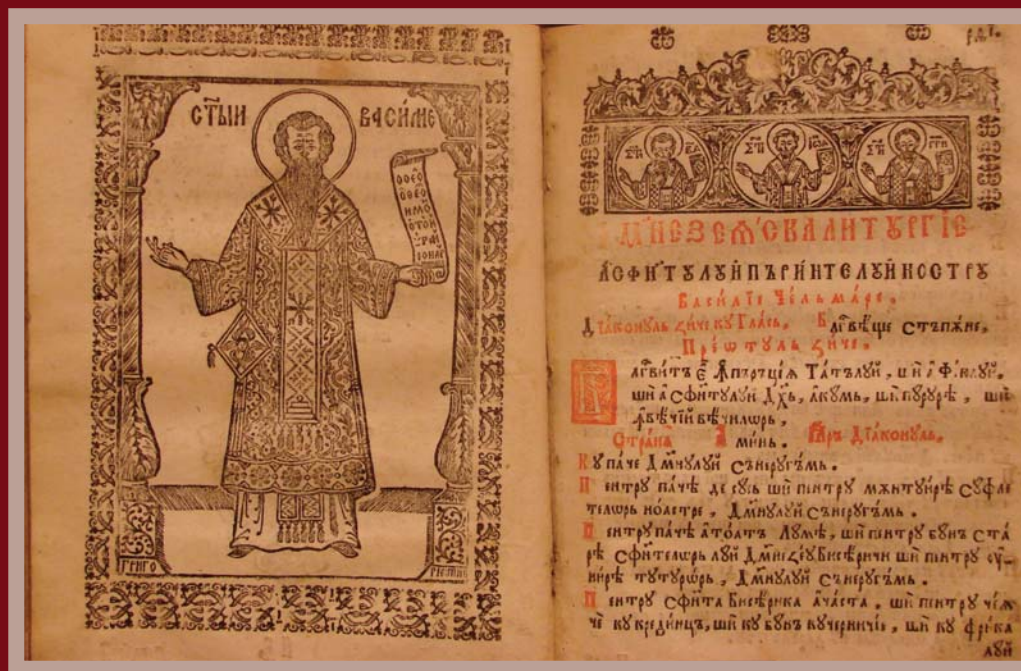 СТ҃ЫИ ВАСИЛІЕ
ГРИГО
ДМ҃НЕЗЕѦ́СКА ЛИТꙊРГІЕ
А́СФИ́НТꙊЛꙊЙ ПЪРИ́НТЕЛꙊЙ НОСТРꙊ
Васи́лїе Че́ль ма́ре.
Дїа́конꙋль ꙃи́че кꙋ Гла́сь. Бл҃гⷭ҇вѣ́ще Стъпѫ́не.
Прео́тꙋль ꙃи́че.
ши́ а҆ Сфи́тꙋлꙋй Дх҃ь, а҆кꙋ́мь, ши́ пꙋ́рꙋрѣ, ши́
ꙟ҆вѣ́чїй вѣ́чилѡрь.
Стра́на А҆ми́нь. Ꙗ҆́рь Дїа́конꙋль.
Кꙋ па́че Дм҃нꙋлꙋй Съ́не рꙋгъ́мь.
Пе́нтрꙋ па́чѣ де сꙋ́сь ши́ пе́нтрꙋ мѫнтꙋи́рѣ Сꙋ́фле
телѡрь ноа́стре, Дм҃нꙋлꙋй Съ́не рꙋгъ́мь.
Пе́нтрꙋ па́чѣ а҆ тоа́тъ Лꙋ́мѣ, ши́ пе́нтрꙋ бꙋ́нъ Ста́
рѣ Сфи́нтелѡрь лꙋй Дм҃неꙃеꙋ Бисѣ́ричи ши́ пе́нтрꙋ
ни́рѣ тꙋтꙋ́рѡрь, Дм҃нꙋлꙋй Съ́не рꙋгъ́мь.
Пе́нтрꙋ Сфѫ́нта Бисѣ́рика а҆ча́ста, ши́ пе́нтрꙋ че́ѧ
че кꙋ креди́нцъ, ши́ кꙋ бꙋ́нъ кꙋчерни́чїе, ши́ кꙋ фри́ка
лꙋй